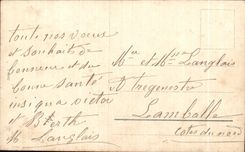 toute nos voeux
et souhait de
bonneur et de
bonne santé
insi qu a victor
et Berth
Langlois
Mr et Mme Langlois
A tregenestre
Lamballe
Cotes du nord